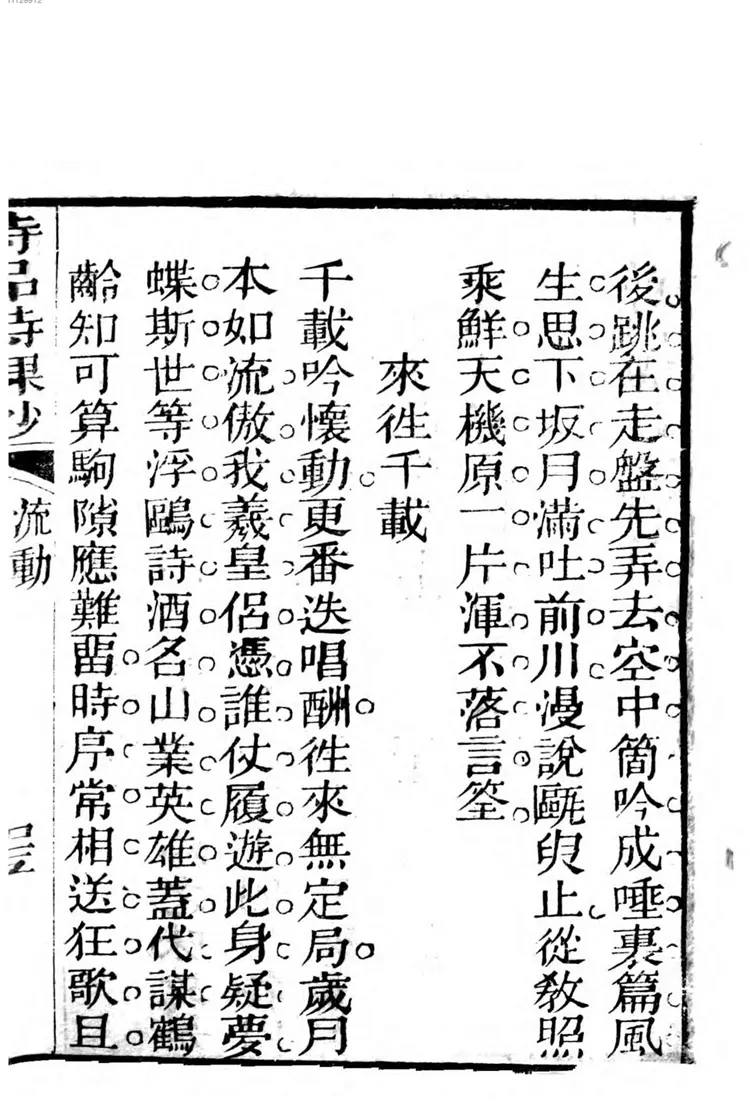 後跳在走盤先弄去空中箇吟成唾裏篇風
生思下坂月滿吐前川漫說甌臾止從教照
乘鮮天機原一片渾不落言筌
來往千載
千載吟懷動更番迭唱酬往來無定局歲月
本如流傲我羲皇侶憑誰仗履遊此身疑夢
蝶斯世等浮鷗詩酒名山業英雄蓋代謀鶴
齡知可算駒隙應難畱時序常相送狂歌且
詩品詩課鈔
流動